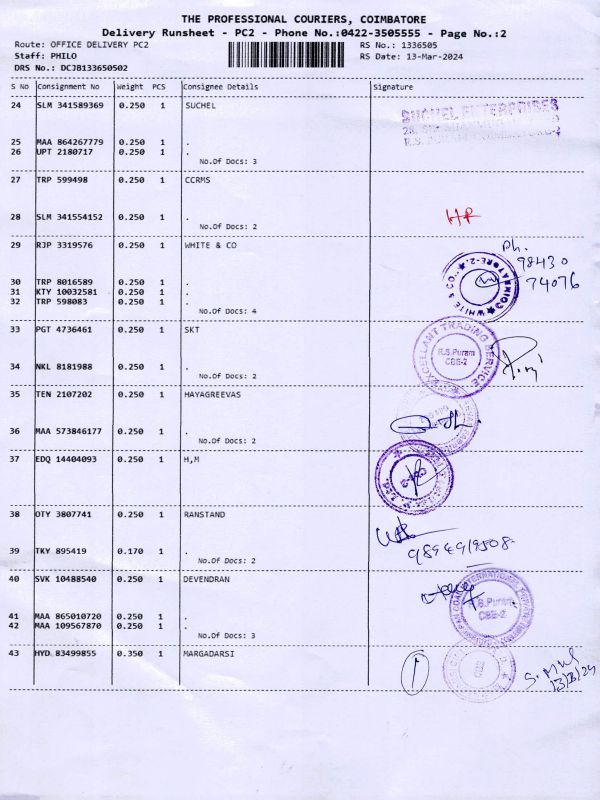 THE PROFESSIONAL COURIERS, COIMBATORE
Delivery Runsheet - PC2 - Phone No.:0422-3505555 - Page No.:2
Route: OFFICE DELIVERY PC2 RS No.: 1336505
Staff: PHILO RS Date: 13-Mar-2024
DRS No.: DCJB133650502
S No Consignment No Weight PCS Consignee Details Signature
24 SLM 341589369 0.250 1 SUCHEL
SUCHEL ENTERPRISES
25 MAA 864267779 0.250 1 .
26 UPT 2180717 0.250 1 .
No.Of Docs: 3
27 TRP 599498 0.250 1 CCRMS
28 SLM 341554152 0.250 1 .
HR
No.Of Docs: 2
29 RJP 3319576 0.250 1 WHITE & CO
Ph.
98430
74076
WHITE & CO COIMBATORE-2
30 TRP 8016589 0.250 1 .
31 KTY 10032581 0.250 1 .
32 TRP 598083 0.250 1 .
No.Of Docs: 4
33 PGT 4736461 0.250 1 SKT
EXCELLANT TRADING SERVICE
R.S.Puram
CBE-2
34 NKL 8181988 0.250 1 .
No.Of Docs: 2
35 TEN 2107202 0.250 1 HAYAGREEVAS
36 MAA 573846177 0.250 1 .
No.Of Docs: 2
37 EDQ 14404093 0.250 1 H,M
38 OTY 3807741 0.250 1 RANSTAND
39 TKY 895419 0.170 1 .
No.Of Docs: 2
40 SVK 10488540 0.250 1 DEVENDRAN
R.S.Puram
CBE-2
41 MAA 865010720 0.250 1 .
42 MAA 109567870 0.250 1 .
No.Of Docs: 3
43 HYD 83499855 0.350 1 MARGADARSI
1
13/3/24